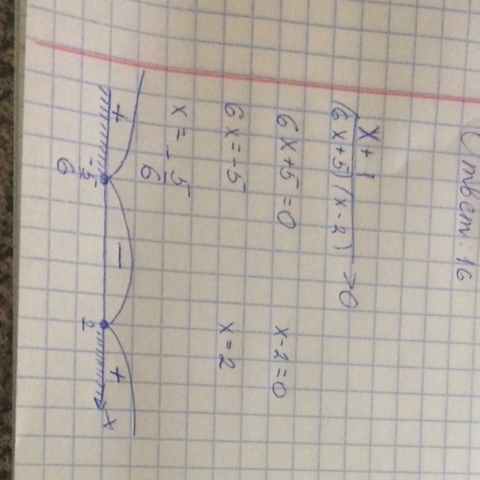 Ответ: 16
x + 1
(6x+5)(x-2) > 0
6x+5=0 x-2=0
6x=-5 x=2
x = -5/6
+ — +
-5/6 2 x